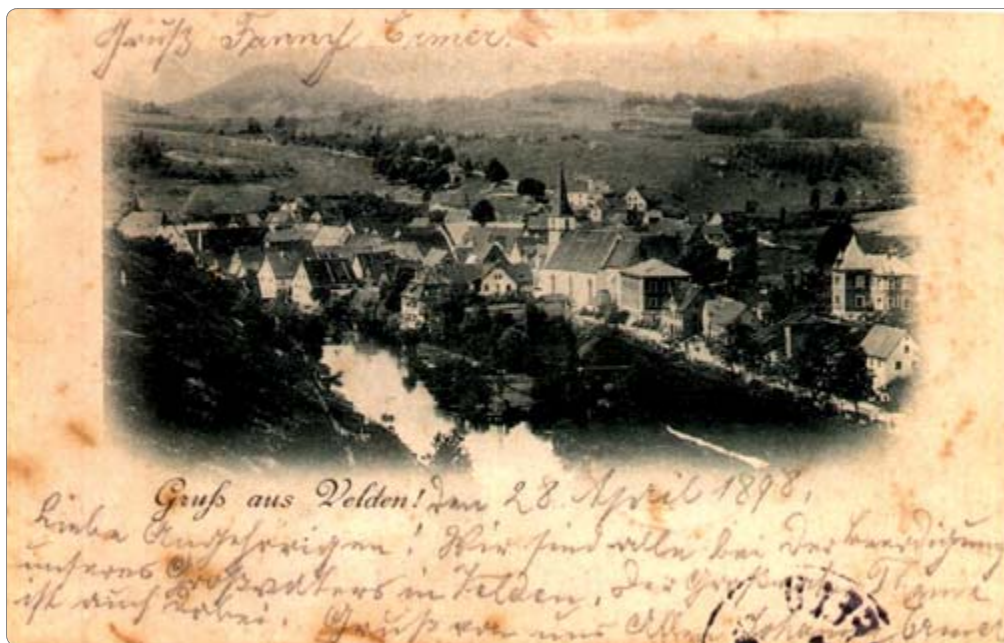 Gruß Fanny Ermer.
Gruß aus Velden! den 28. April 1898.
Liebe Angehörigen! Wir sind alle bei der Beerdigung
unseres Großvaters in Velden, der
ist auch dabei. Gruß von uns Allen Johann Ermer